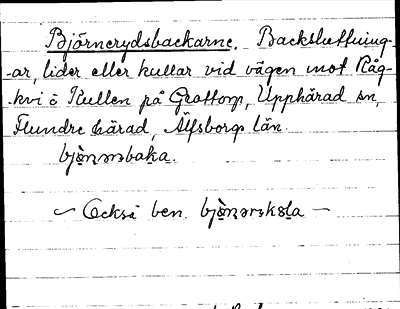 Björnerydsbackarne. Backsluttning-
-ar, lider eller kullar vid vägen mot Råg-
-kvi å Kullen på Grottorp, Upphärad sn,
Flundre härad, Älfsborgs län.
bjò̤nərsbaka.
~ Också ben. —